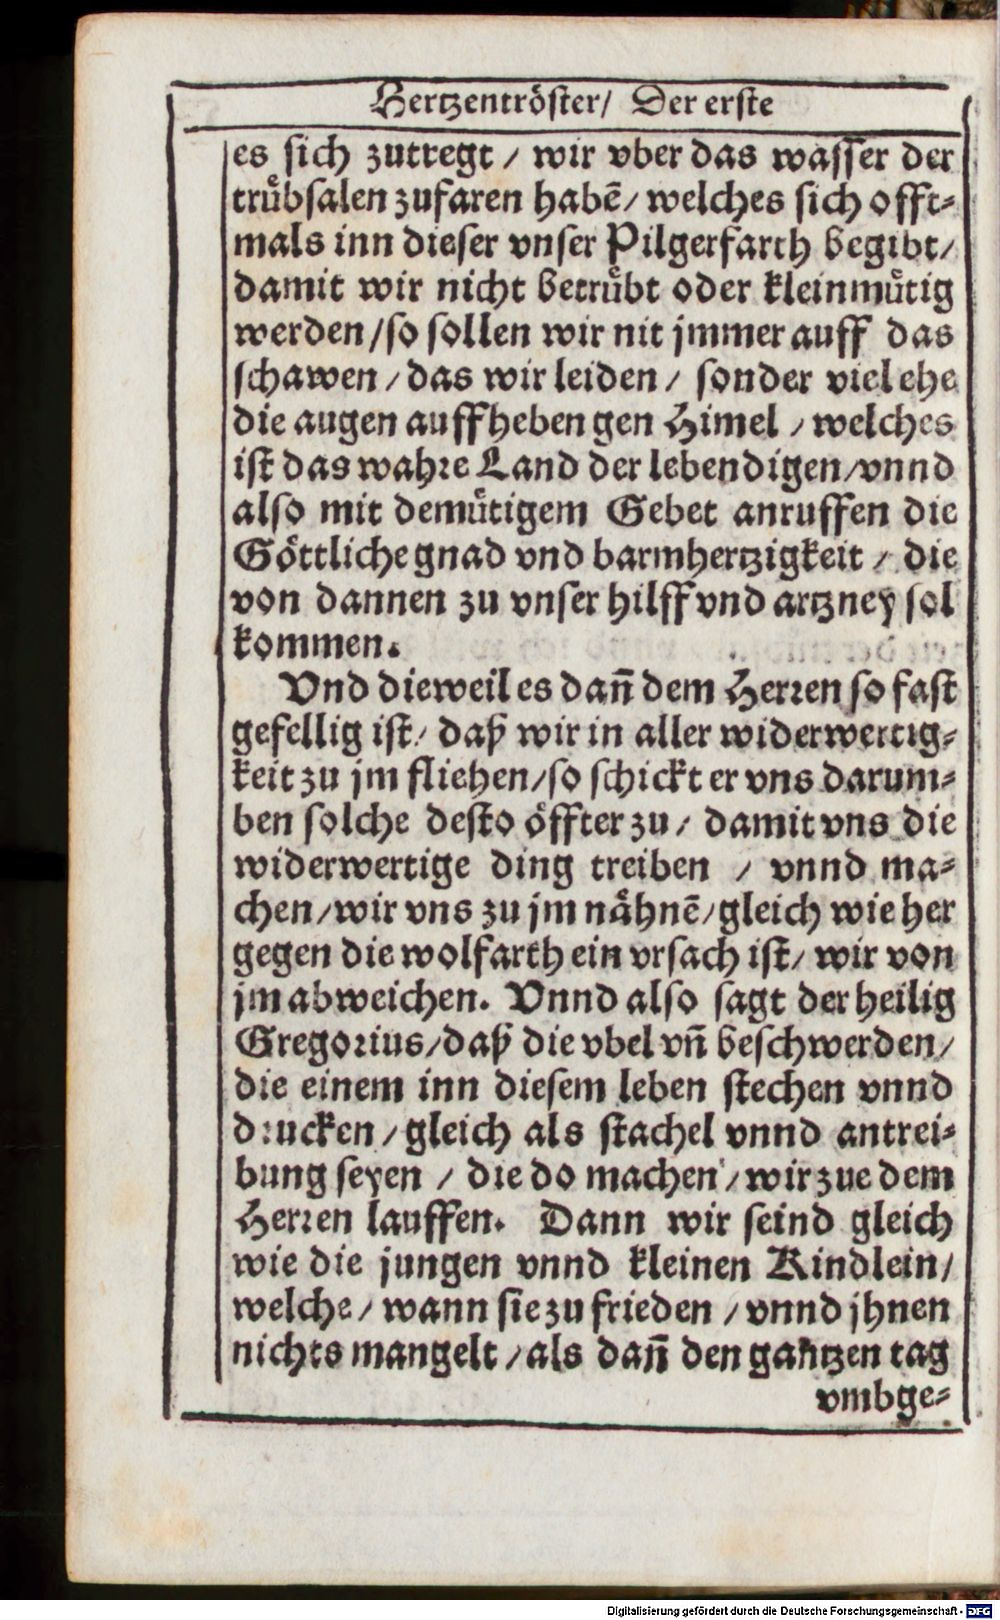 Hertzentröster/ Der erste
es sich zutregt / wir vber das wasser der
truͤbsalen zufaren habẽ/ welches sich offt⸗
mals inn dieser vnser Pilgerfarth begibt/
damit wir nicht betruͤbt oder kleinmuͤtig
werden/so sollen wir nit jmmer auff das
schawen / das wir leiden / sonder viel ehe
die augen auffheben gen Himel / welches
ist das wahre Land der lebendigen/vnnd
also mit demuͤtigem Gebet anruffen die
Goͤttliche gnad vnd barmhertzigkeit / die
von dannen zu vnser hilff vnd artzney sol
kommen.
Vnd dieweil es dañ dem Herren so fast
gefellig ist/ daß wir in aller widerwertig⸗
keit zu jm fliehen/so schickt er vns darum⸗
ben solche desto oͤffter zu / damit vns die
widerwertige ding treiben / vnnd ma⸗
chen/wir vns zu jm naͤhnẽ/gleich wie her
gegen die wolfarth ein vrsach ist/ wir von
jm abweichen. Vnnd also sagt der heilig
Gregorius/daß die vbel vñ beschwerden/
die einem inn diesem leben stechen vnnd
drucken / gleich als stachel vnnd antrei⸗
bung seyen / die do machen / wir zue dem
Herren lauffen. Dann wir seind gleich
wie die jungen vnnd kleinen Kindlein/
welche / wann sie zu frieden / vnnd jhnen
nichts mangelt / als dañ den gantzen tag
vmbge⸗
Digitalisierung gefördert durch die Deutsche Forschungsgemeinschaft - DFG